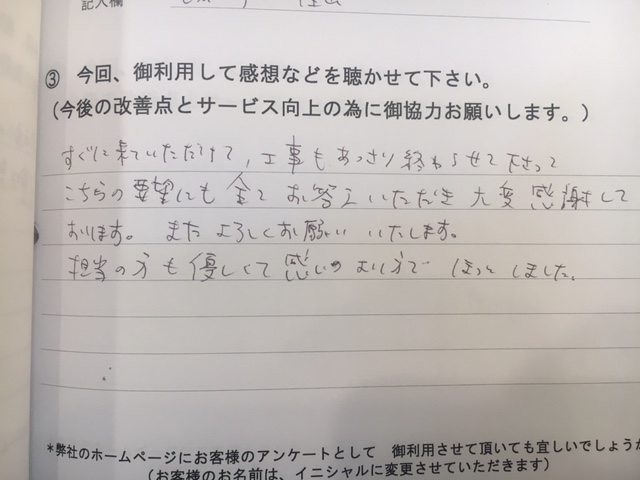 記入欄
③ 今回、御利用して感想などを聴かせて下さい。
(今後の改善点とサービス向上の為に御協力お願いします。)
すぐに来ていただけて、工事もあっさり終わらせて下さって
こちらの要望にも全てお答えいただき大変感謝して
おります。またよろしくお願いいたします。
担当の方も優しくて感じのよい方でほっとしました。
*弊社のホームページにお客様のアンケートとして 御利用させて頂いても宜しいでしょうか
(お客様のお名前は、イニシャルに変更させていただきます)